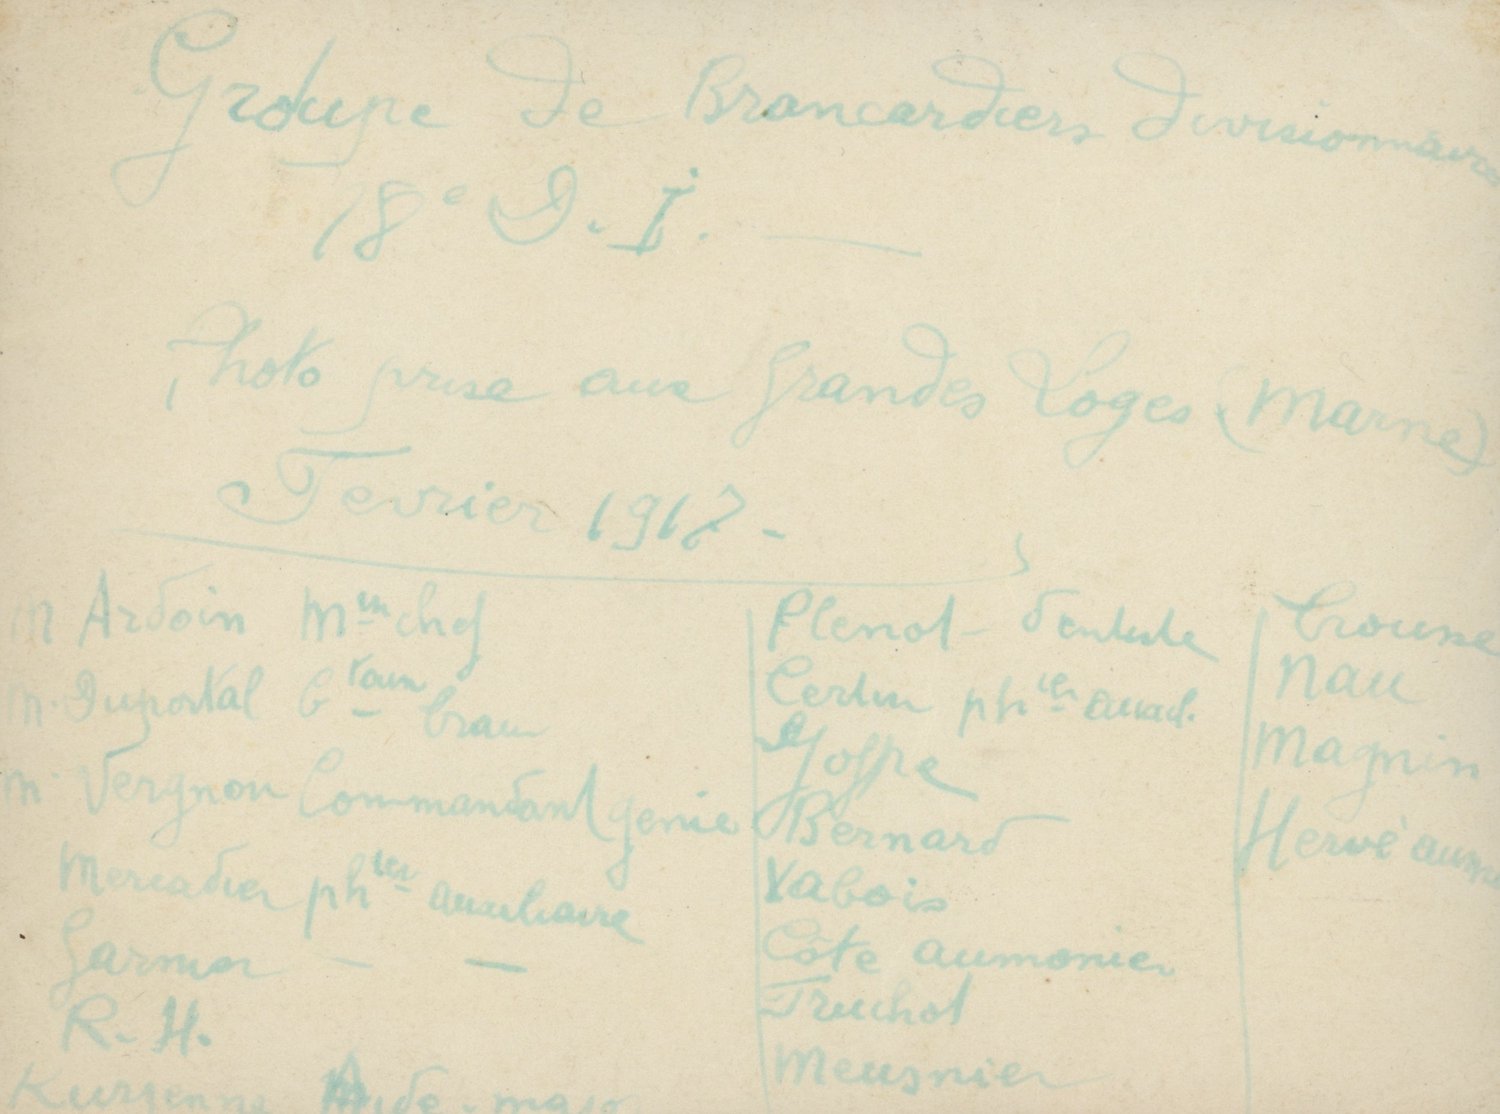 Groupe de Brancardiers divisionnaires
18e D. I.
Photo prise aux Grandes Loges (Marne)
Fevrier 1917 -
M Ardoin Min chef
M. Duportal
M. Vergnon Commandant génie
Mercadier phien auxiliaire
Garnier — —
R. H.
Aide-major
Plenot - dentiste
Certin phien auxil.
Goffre
Bernard
Vabois
Côte aumonier
Truchot
Meusnier
Nau
Magnin
Hervé